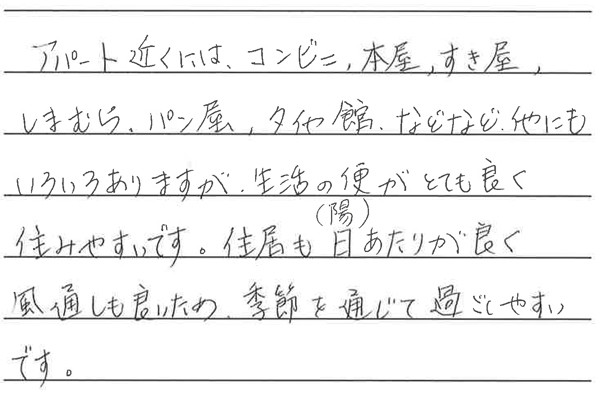 アパート近くには、コンビニ,本屋,すき屋,
しまむら、パン屋,タイヤ館、などなど、他にも
いろいろありますが、生活の便がとても良く
住みやすいです。住居も日(陽)あたりが良く
風通しも良いため、季節を通じて過ごしやすい
です。